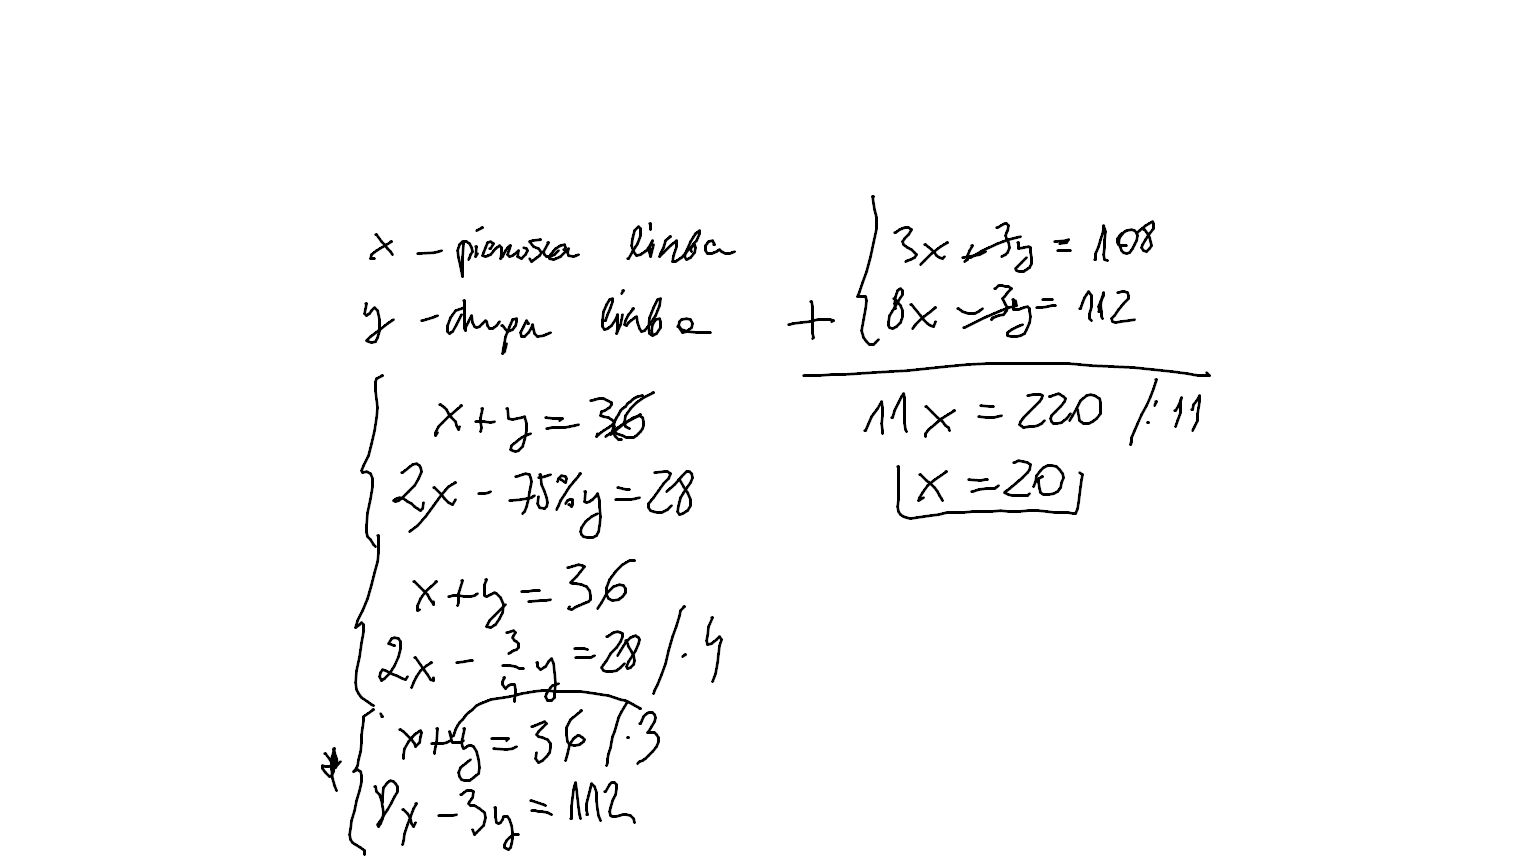 x – pierwsza liczba
y – druga liczba
x + y = 36
2x - 75% y = 28
x + y = 36
2x - 3/4 y = 28 / · 4
x + y = 36 / · 3
8x - 3y = 112
3x + 3y = 108
+ 8x - 3y = 112
11x = 220 / : 11
x = 20